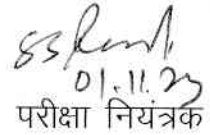 01.11.23
परीक्षा नियंत्रक